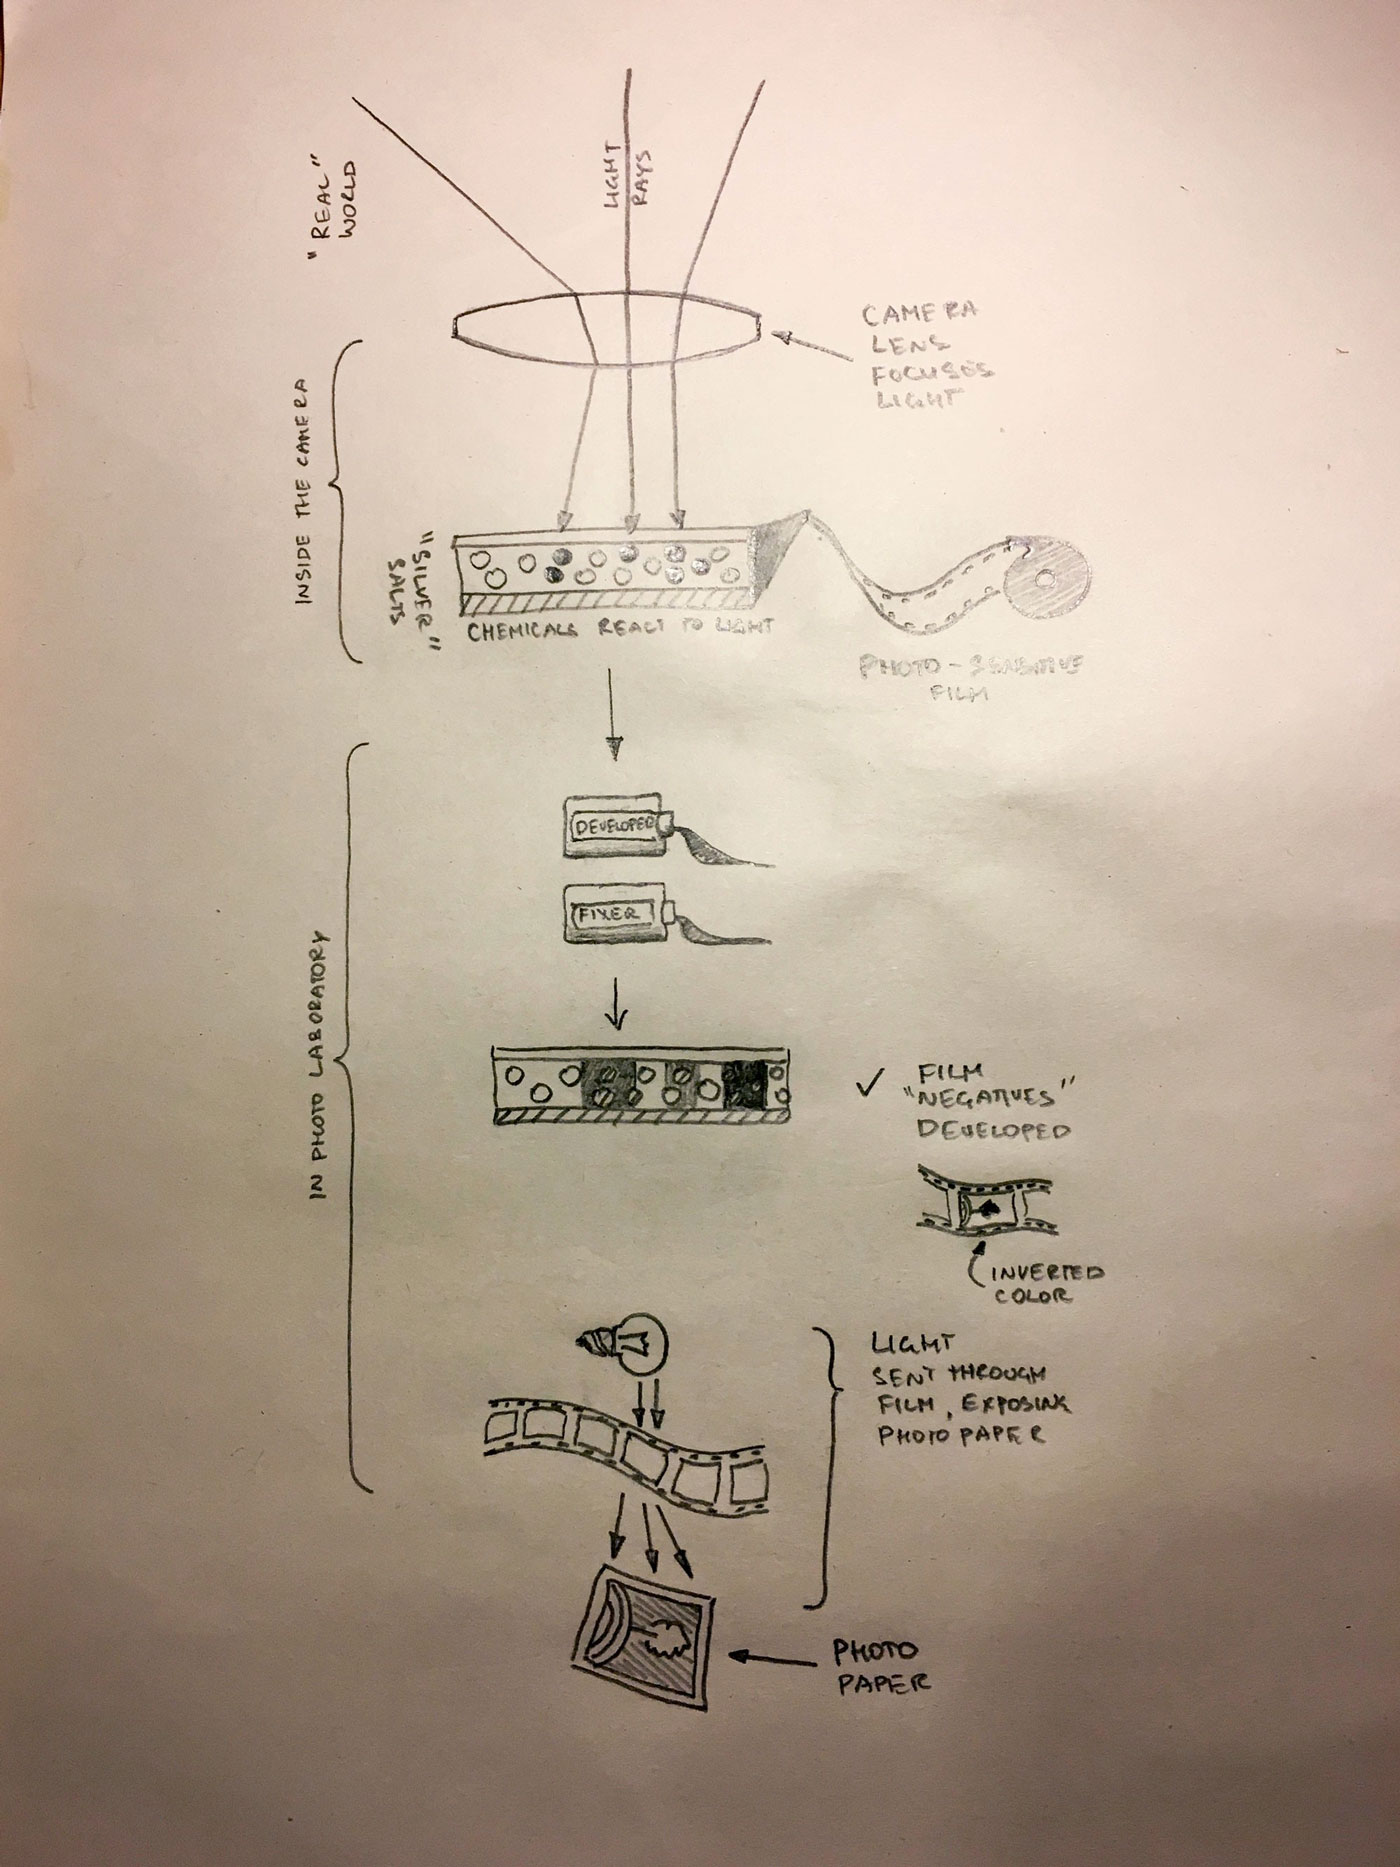 "REAL"
WORLD
LIGHT
RAYS
CAMERA
LENS
FOCUSES
LIGHT
INSIDE THE CAMERA
"SILVER"
SALTS
CHEMICALS REACT TO LIGHT
PHOTO-SENSITIVE
FILM
IN PHOTO LABORATORY
DEVELOPER
FIXER
✓ FILM
"NEGATIVES"
DEVELOPED
INVERTED
COLOR
LIGHT
SENT THROUGH
FILM, EXPOSING
PHOTO PAPER
PHOTO
PAPER